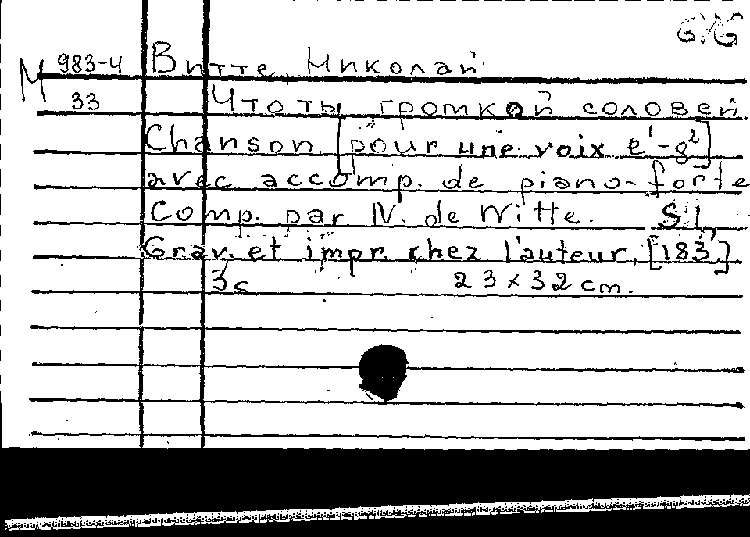 М 983-4 Витте, Николай
33 Что ты громкой соловей.
Chanson [pour une voix e¹-g²]
avec accomp. de piano-forte
Comp. par N. de Witte. S.l.,
Grav. et impr. chez l'auteur, [183 ]
3c 23 x 32 cm.